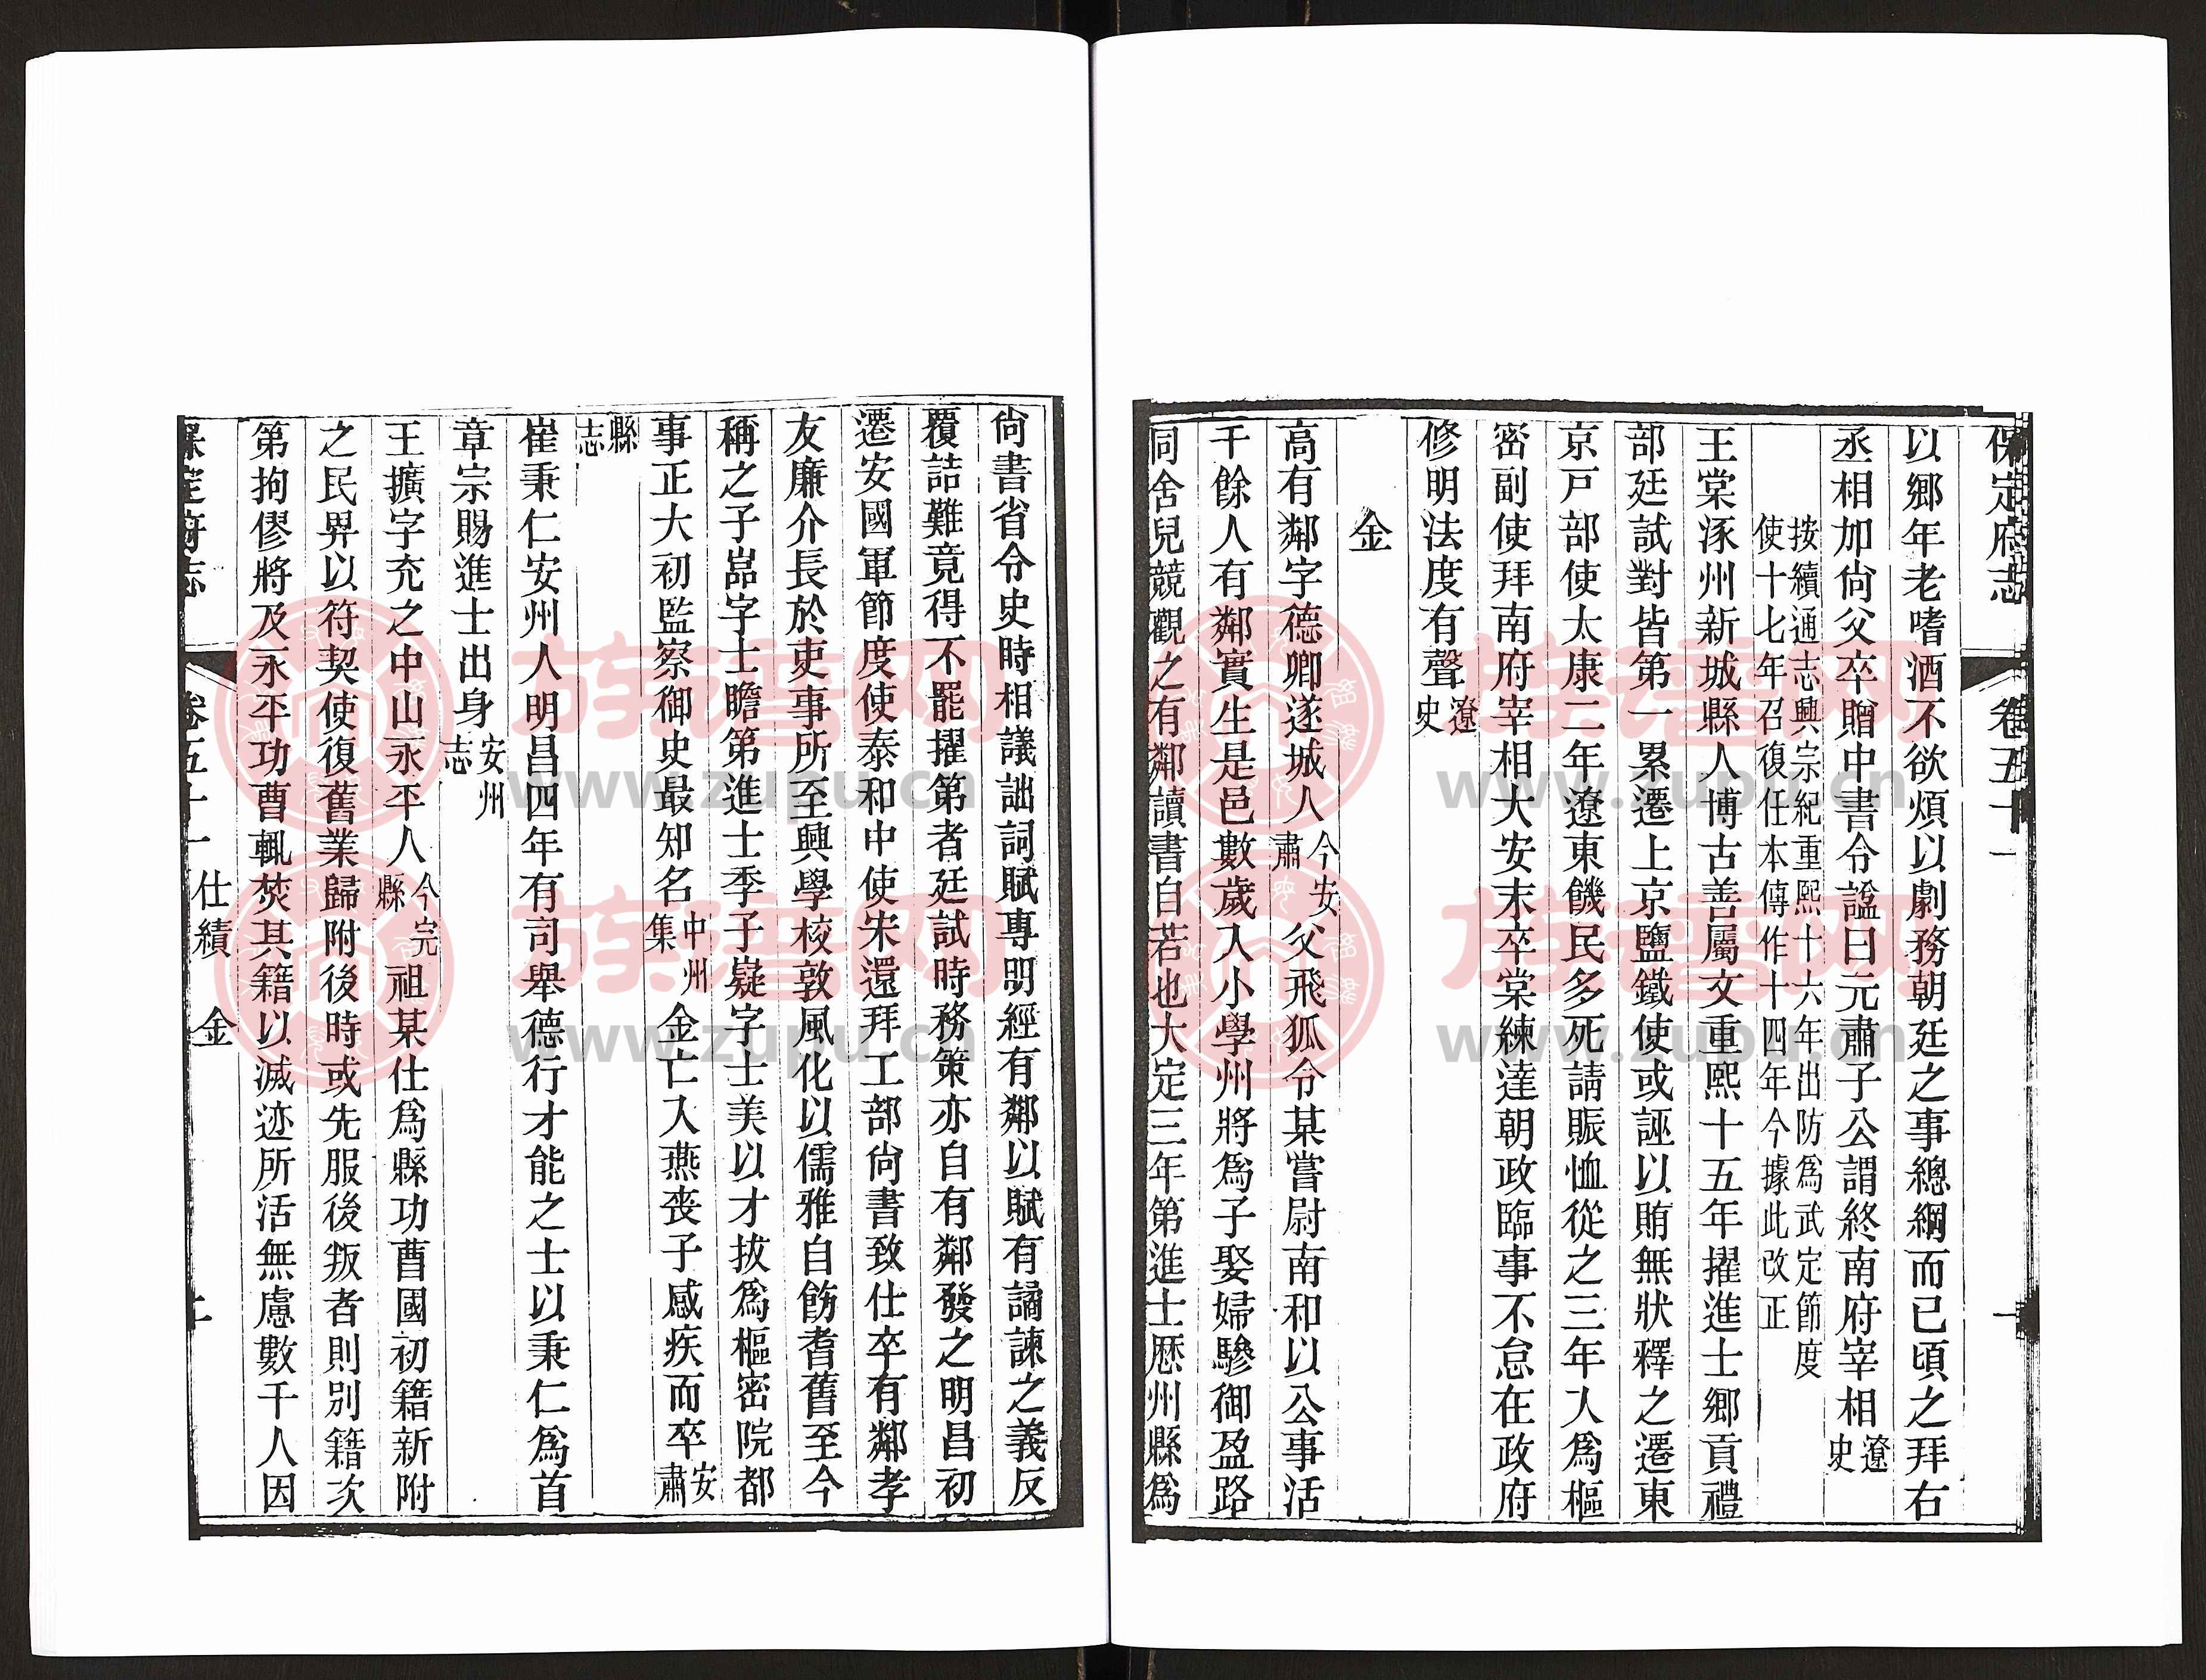 保定府志 卷五十一
以鄉年老嗜酒不欲煩以劇務朝廷之事總綱而已頃之拜右
丞相加尚父卒贈中書令諡曰元肅子公謂終南府宰相遼史
按續通志興宗紀重熙十六年出防爲武定節度
使十七年召復任本傳作十四年今據此改正
王棠涿州新城縣人博古善屬文重熙十五年擢進士鄉貢禮
部廷試對皆第一累遷上京鹽鐵使或誣以賄無狀釋之遷東
京戸部使太康二年遼東饑民多死請賑恤從之三年入爲樞
密副使拜南府宰相大安末卒棠練達朝政臨事不怠在政府
修明法度有聲遼史
金
高有鄰字德卿遂城人今安肅父飛狐令某嘗尉南和以公事活
千餘人有鄰實生是邑數歲入小學州將爲子娶婦驂御盈路
同舍兒競觀之有鄰讀書自若也大定三年第進士歷州縣爲
尚書省令史時相議詘詞賦專明經有鄰以賦有譎諫之義反
覆詰難竟得不罷擢第者廷試時務策亦自有鄰發之明昌初
遷安國軍節度使泰和中使宋還拜工部尚書致仕卒有鄰孝
友廉介長於吏事所至興學校敦風化以儒雅自飭耆舊至今
稱之子嵓字士瞻第進士季子嶷字士美以才拔爲樞密院都
事正大初監察御史最知名中州集金亡入燕喪子感疾而卒安肅
縣志
崔秉仁安州人明昌四年有司舉德行才能之士以秉仁爲首
章宗賜進士出身安州志
王擴字充之中山永平人今完縣祖某仕爲縣功曹國初籍新附
之民畀以符契使復舊業歸附後時或先服後叛者則別籍次
第拘僇將及永平功曹輒焚其籍以滅迹所活無慮數千人因
保定府志 卷五十一 仕績 金
族谱网
www.zupu.cn
族谱网
www.zupu.cn
族谱网
www.zupu.cn
族谱网
www.zupu.cn